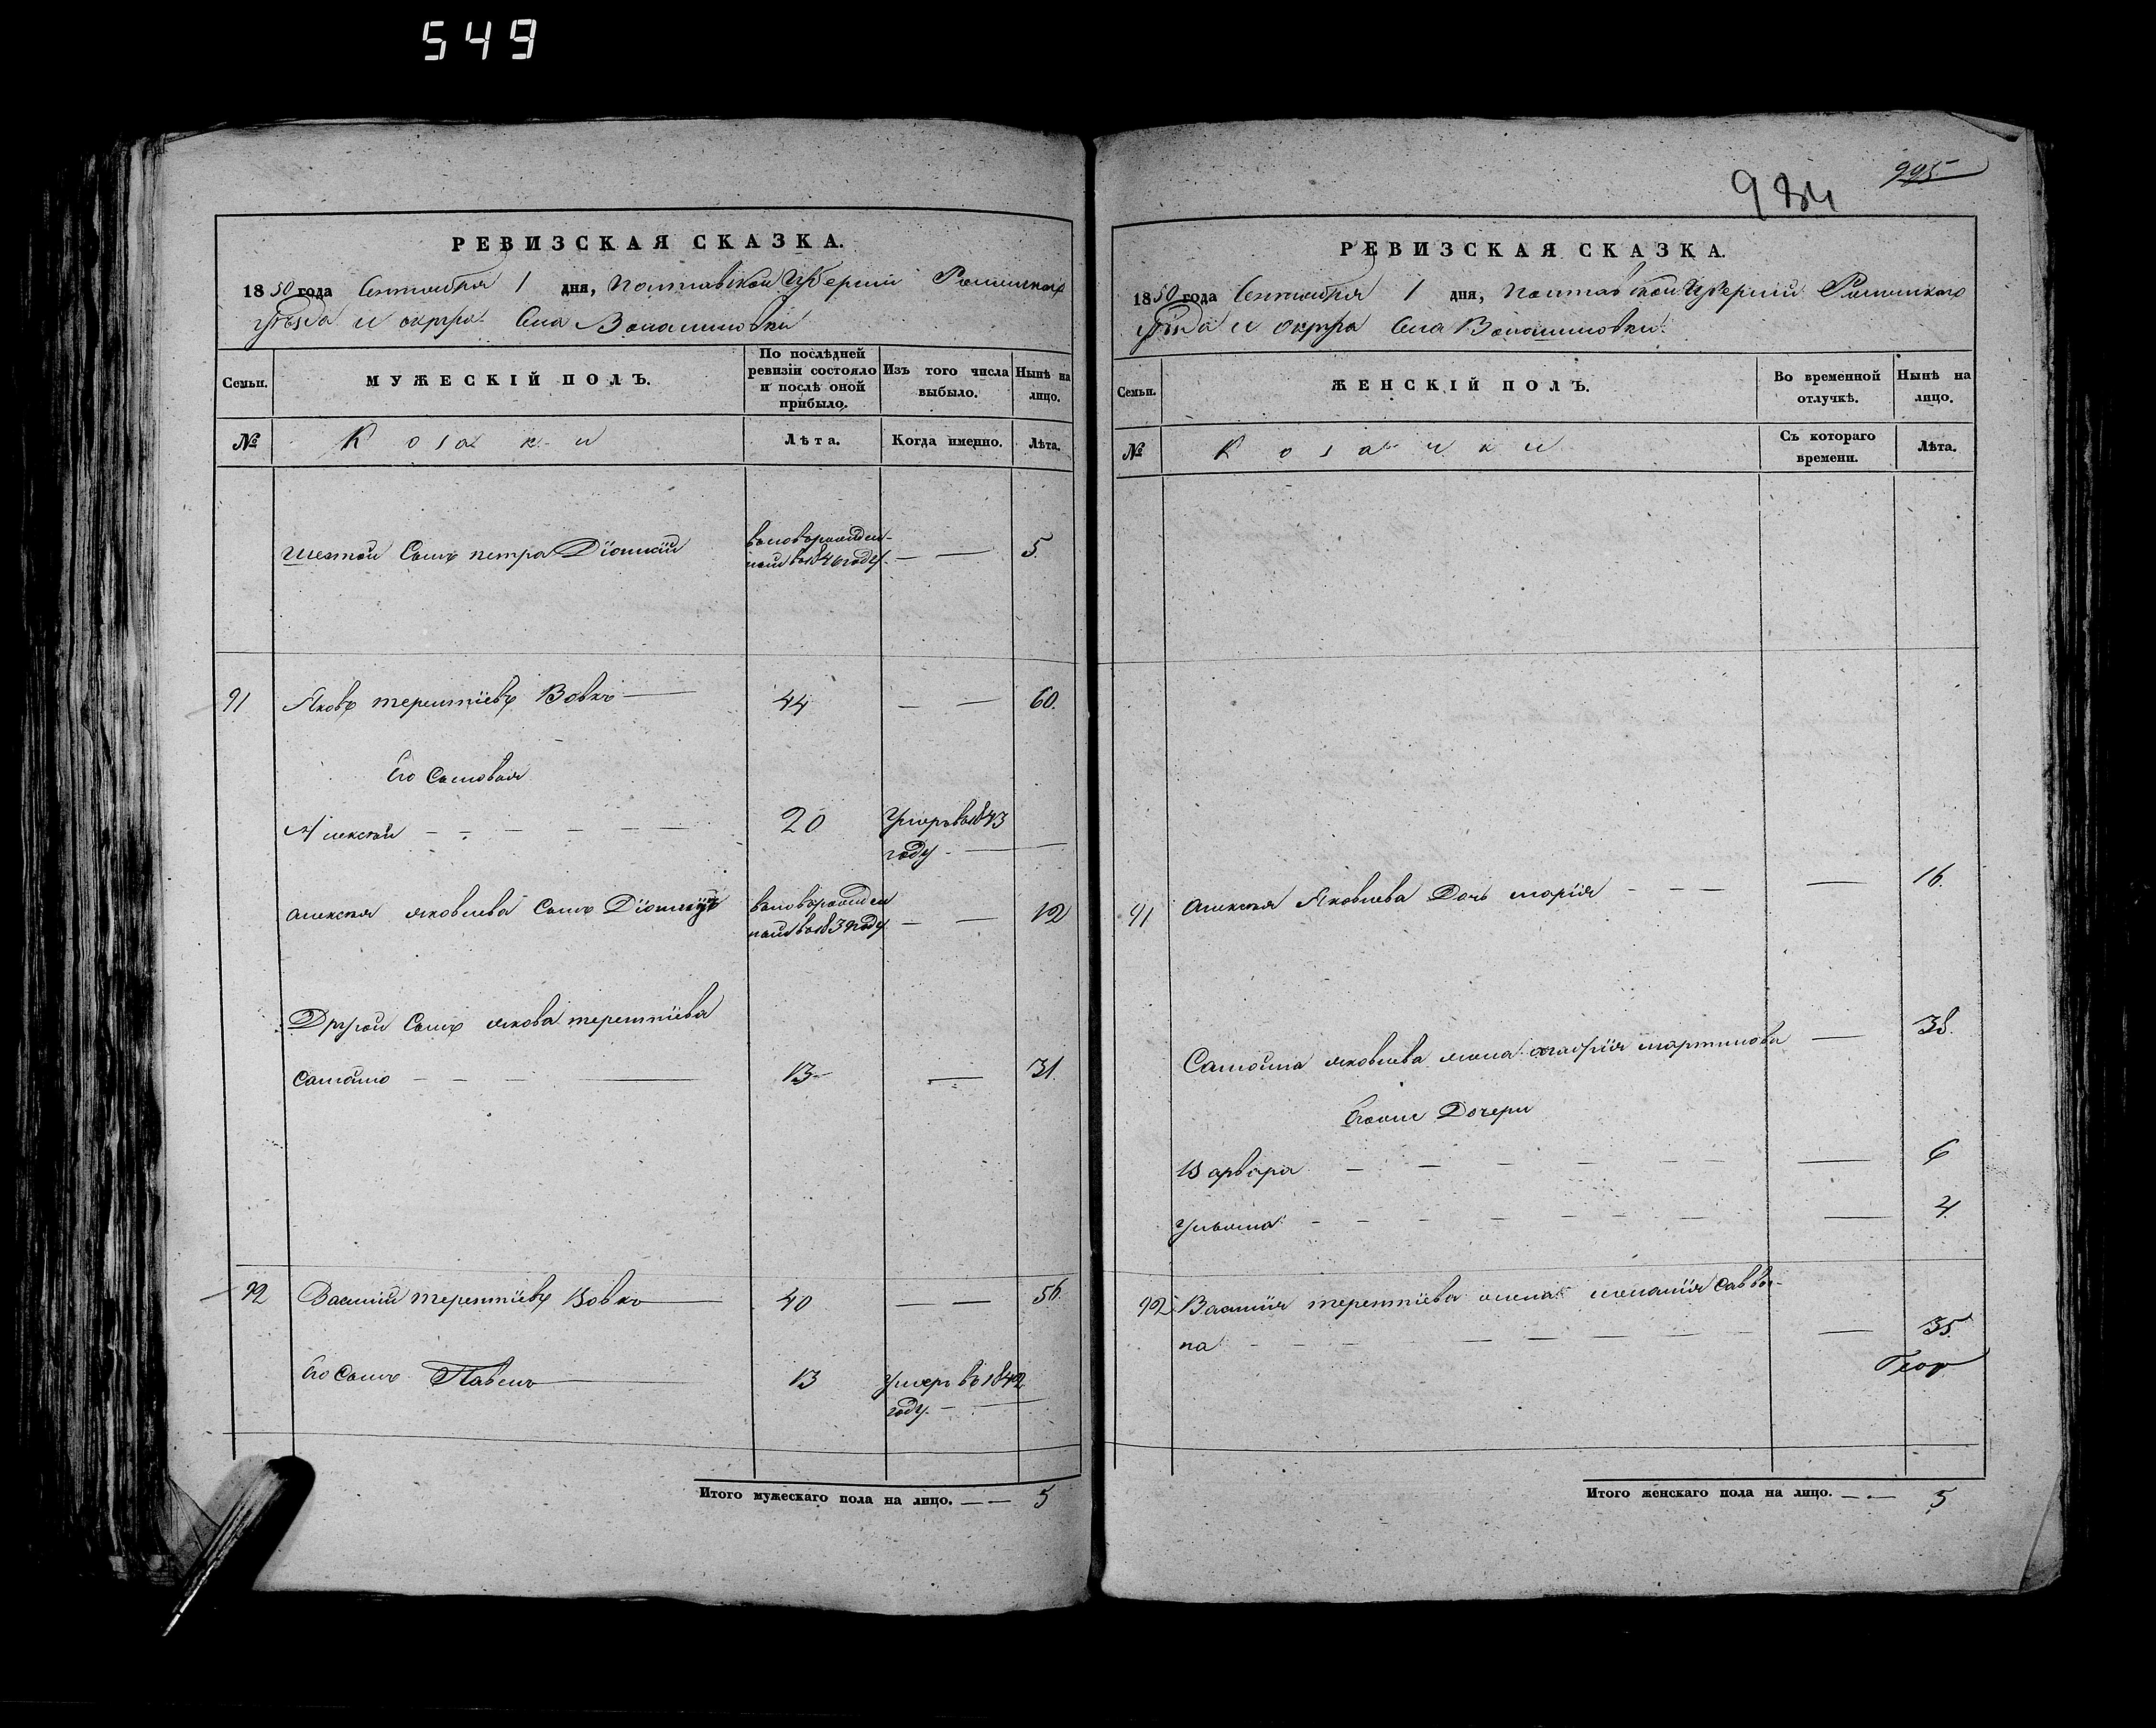 549
РЕВИЗСКАЯ СКАЗКА.
1850 года Сентября 1 дня, Полтавской Губерніи Роменскаго
уѣзда и округа Села Волошиновки
Семьи.
МУЖЕСКІЙ ПОЛЪ.
По послѣдней ревизіи состояло и послѣ оной прибыло.
Изъ того числа выбыло.
Нынѣ на лицо.
№
Козаки
Лѣта.
Когда именно.
Лѣта.
шестой Сынъ петра Діонисій
вновь рожден-
ный въ 1846 году — — 5.
91 Яковъ терентіевъ Вовкъ — 44 — — 60.
Его Сыновья
Алексѣй — — — — — — 20 Умеръ въ 1843
году —
алексѣя яковлева Сынъ Діонисій
вновь рожден
ный въ 1839 году — — 12
Другой Сынъ якова терентіева
самойло — — — — 13 — 31.
92 Василій терентіевъ Вовкъ — 40 — — 56.
Его Сынъ Павелъ — 13 Умеръ въ 1842
году. —
Итого мужескаго пола на лицо. — — 5
995
984
РЕВИЗСКАЯ СКАЗКА.
1850 года Сентября 1 дня, Полтавской Губерніи Роменскаго
уѣзда и округа Села Волошиновки
Семьи.
ЖЕНСКІЙ ПОЛЪ.
Во временной отлучкѣ.
Нынѣ на лицо.
№
Козачки
Съ котораго времени.
Лѣта.
91 алексѣя Яковлева Дочь марія — — — — 16.
Самойла яковлева жена агафія мартинова — 38.
Егоже Дочери
Варвара — — — — — — — 6
Ульяна — — — — — — — — 4.
92 Василія терентіева жена меланія Савви-
на — — — — — — — — 35.
Итого женскаго пола на лицо. — — 5